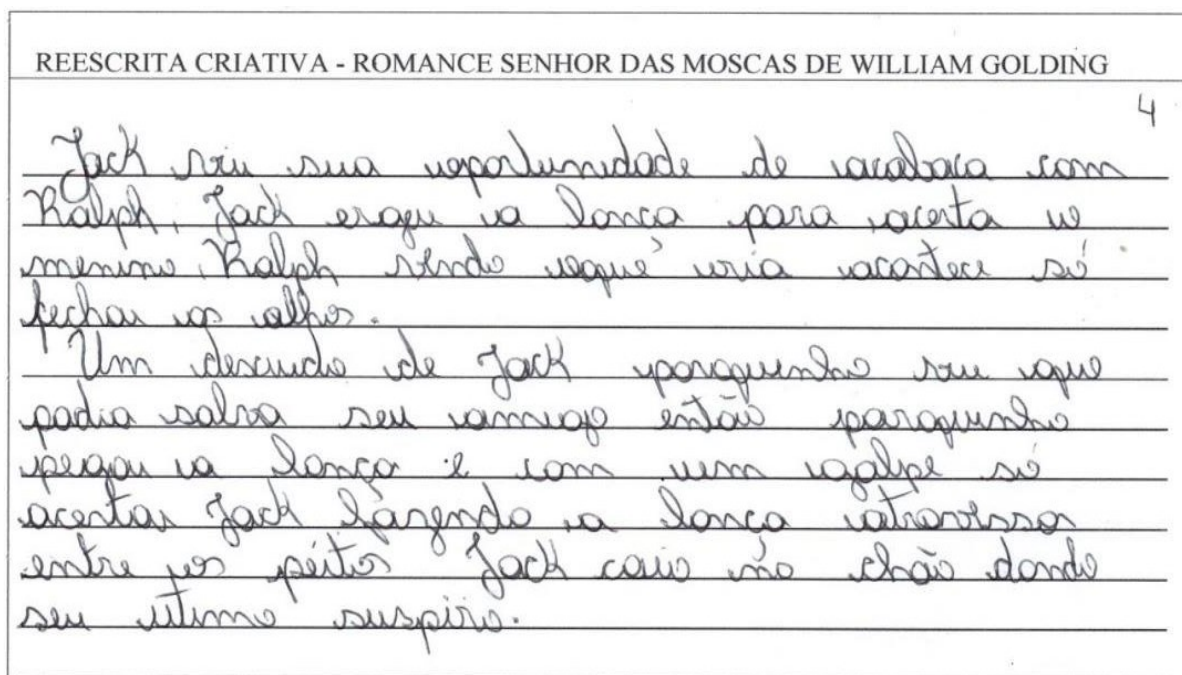 REESCRITA CRIATIVA - ROMANCE SENHOR DAS MOSCAS DE WILLIAM GOLDING
4
Jack viu sua oportunidade de acabaca com
Ralph, Jack erogu a lança para acerta o
menino, Ralph vendo oque iria acontece só
fechou os olhos.
Um descuido de Jack porquinho viu que
podia salva seu amigo então porquinho
pegou a lança e com um golpe só
acertou Jack fazendo a lança atravessa
entre os peitos Jack caio no chão dando
seu utimo suspiro.